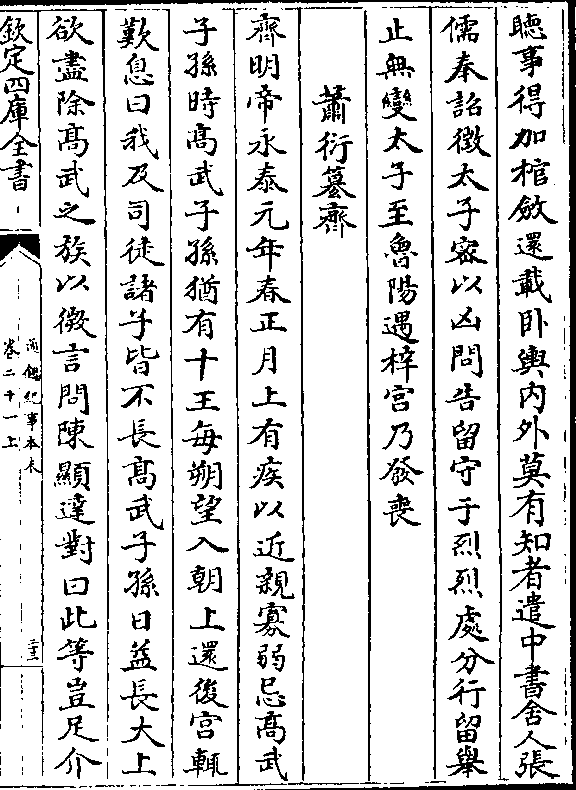 聽事得加棺斂還載臥輿内外莫有知者遣中書舍人張
儒奉詔徵太子宻以凶問告留守于烈烈處分行留舉
止無變太子至魯陽遇梓宫乃發喪
蕭衍簒齊
齊明帝永泰元年春正月上有疾以近親寡弱忌髙武
子孫時髙武子孫猶有十王每朔望入朝上還後宫輒
歎息曰我及司徒諸子皆不長髙武子孫日益長大上
欲盡除髙武之族以微言問陳顯達對曰此等豈足介
欽定四庫全書
通鑑紀事本末
卷二十一上
二十三